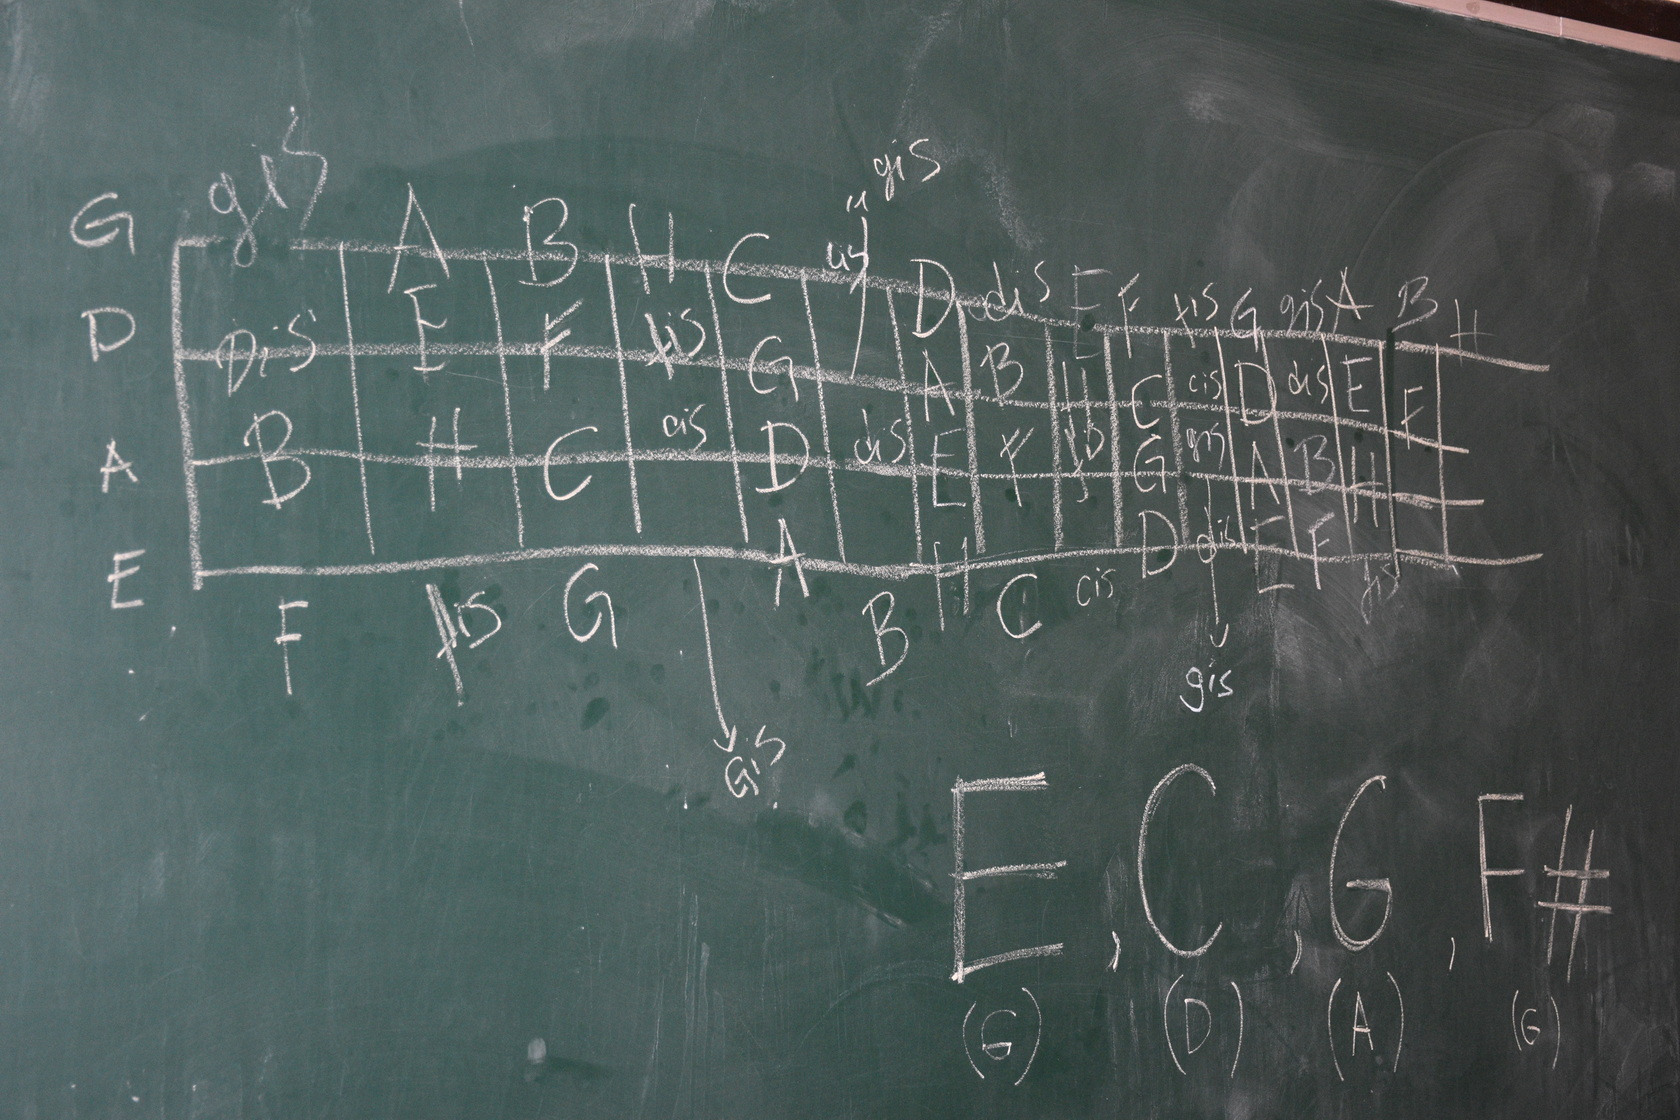 gis
G gis A B H C cis D dis E F fis G gis A B H
D Dis E F fis G A B H C cis D dis E F
A B H C cis D dis E F G gis A B H
E F fis G A B H C cis D dis E F fis
gis
Gis
E , C , G , F#
(G) (D) (A) (G)